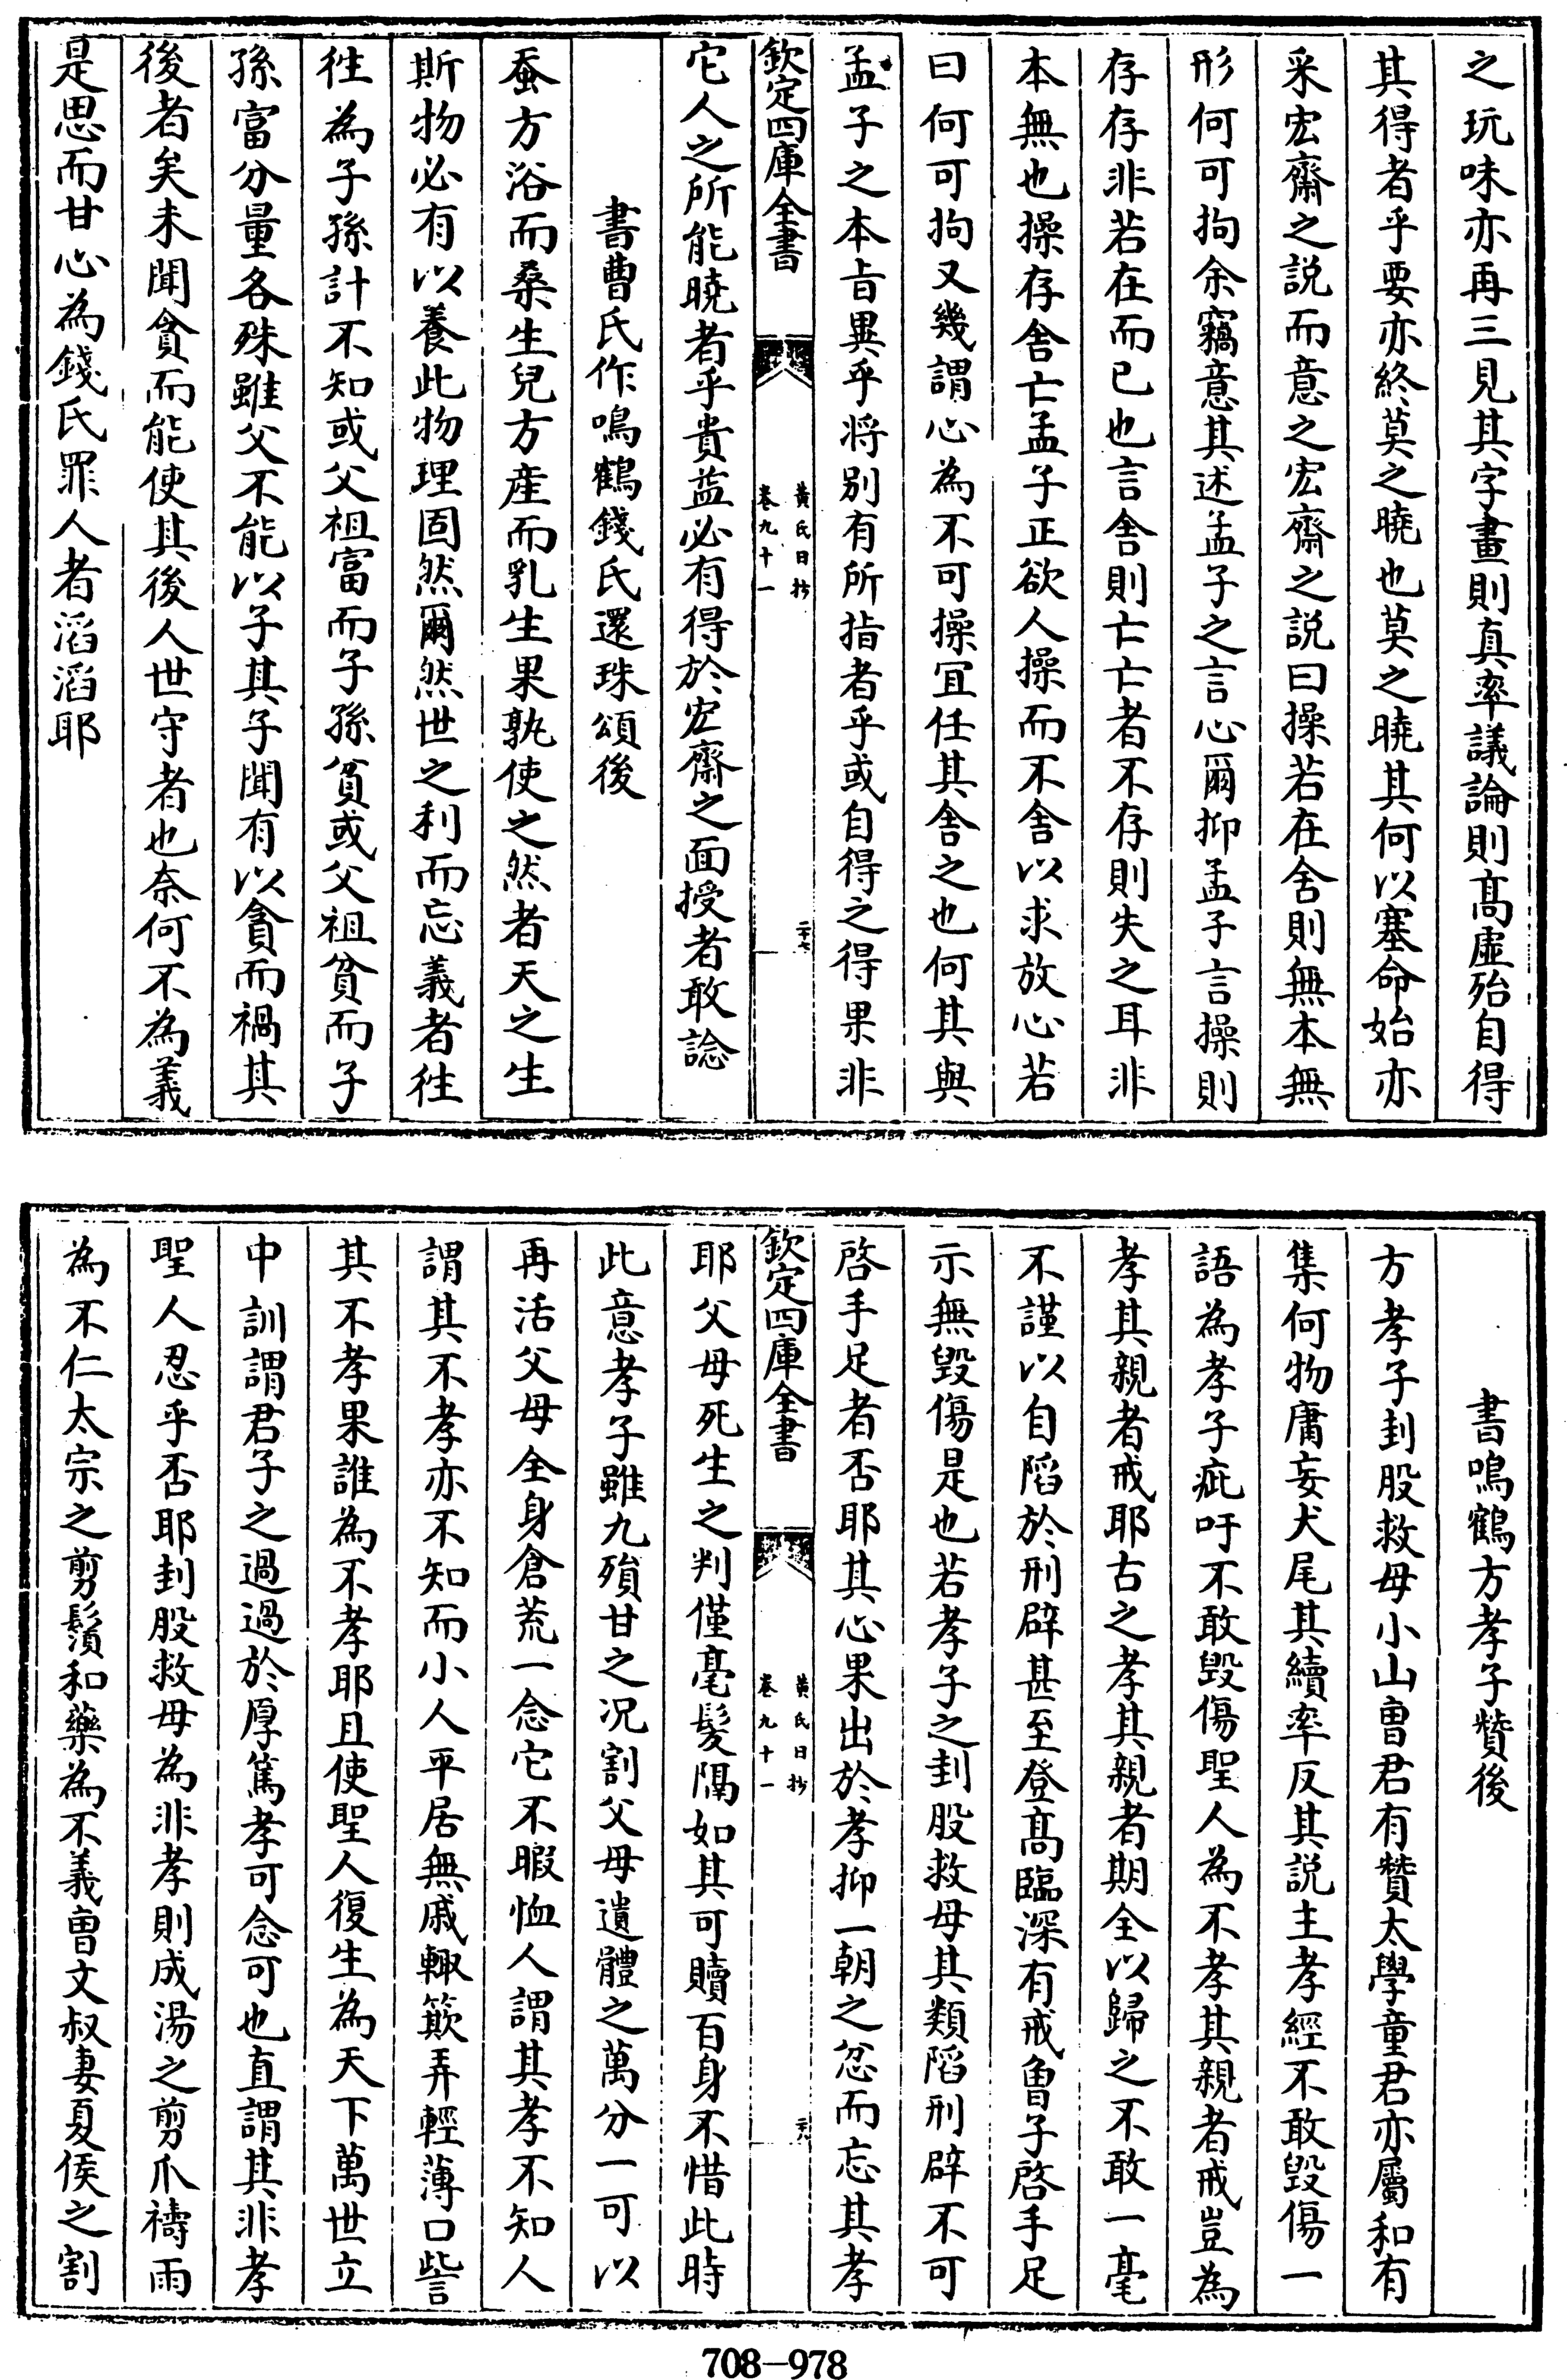 之玩味亦再三見其字畫則真率議論則髙虛殆自得
其得者乎要亦終莫之曉也莫之曉其何以塞命始亦
采宏齋之説而意之宏齋之説曰操若在舍則無本無
形何可拘余竊意其述孟子之言心爾抑孟子言操則
存存非若在而已也言舍則亡亡者不存則失之耳非
本無也操存舍亡孟子正欲人操而不舍以求放心若
曰何可拘又幾謂心為不可操宜任其舍之也何其與
孟子之本旨異乎将别有所指者乎或自得之得果非
欽定四庫全書
黄氏日抄
卷九十一
二十七
它人之所能曉者乎貴益必有得於宏齋之面授者敢諗
書曹氏作鳴鶴錢氏還珠頌後
蚕方浴而桑生兒方産而乳生果孰使之然者天之生
斯物必有以養此物理固然爾然世之利而忘義者往
往為子孫計不知或父祖富而子孫貧或父祖貧而子
孫富分量各殊雖父不能以子其子聞有以貪而禍其
後者矣未聞貪而能使其後人世守者也奈何不為義
是思而甘心為錢氏罪人者滔滔耶
書鳴鶴方孝子贊後
方孝子刲股救母小山曺君有贊太學童君亦屬和有
集何物庸妄犬尾其續率反其説主孝經不敢毁傷一
語為孝子疵吁不敢毁傷聖人為不孝其親者戒豈為
孝其親者戒耶古之孝其親者期全以歸之不敢一毫
不謹以自陷於刑辟甚至登髙臨深有戒曾子啓手足
示無毁傷是也若孝子之刲股救母其類陷刑辟不可
啓手足者否耶其心果出於孝抑一朝之忿而忘其孝
欽定四庫全書
黄氏日抄
卷九十一
二十八
耶父母死生之判僅毫髮隔如其可贖百身不惜此時
此意孝子雖九殞甘之况割父母遺體之萬分一可以
再活父母全身倉荒一念它不暇恤人謂其孝不知人
謂其不孝亦不知而小人平居無戚輙欺弄輕薄口訾
其不孝果誰為不孝耶且使聖人復生為天下萬世立
中訓謂君子之過過於厚篤孝可念可也直謂其非孝
聖人忍乎否耶刲股救母為非孝則成湯之剪爪禱雨
為不仁太宗之剪鬚和藥為不義曺文叔妻夏侯之割
708—978